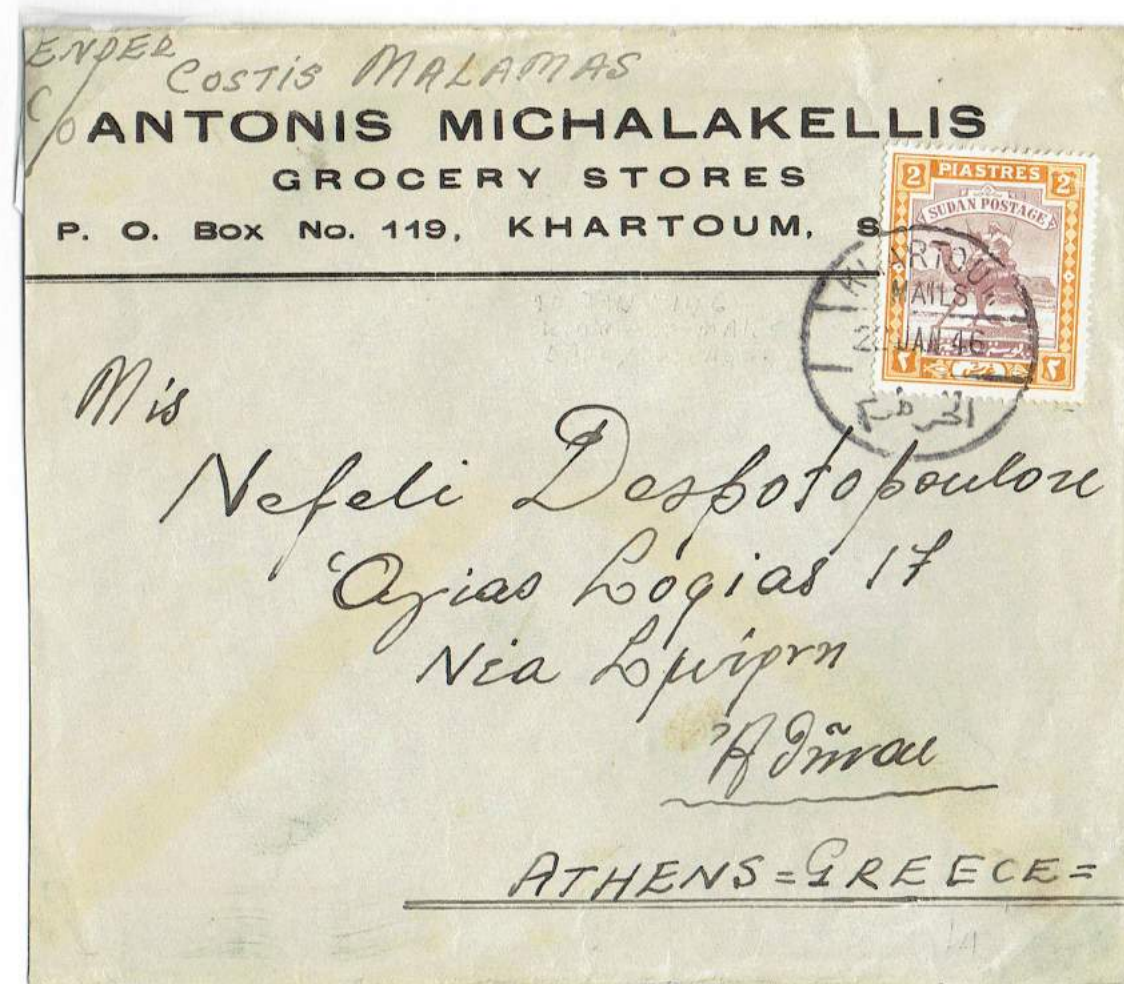 ENDER
COSTIS MALAMAS
C/O ANTONIS MICHALAKELLIS
GROCERY STORES
P. O. Box No. 119, KHARTOUM, S
2 PIASTRES 2
SUDAN POSTAGE
KHARTOUM
MAILS
JAN 46
٢ ٢
الخرطوم
Mis
Nefeli Despotopoulou
Ἁγίας Σοφίας 17
Νέα Σμύρνη
Ἀθῆναι
ATHENS = GREECE =